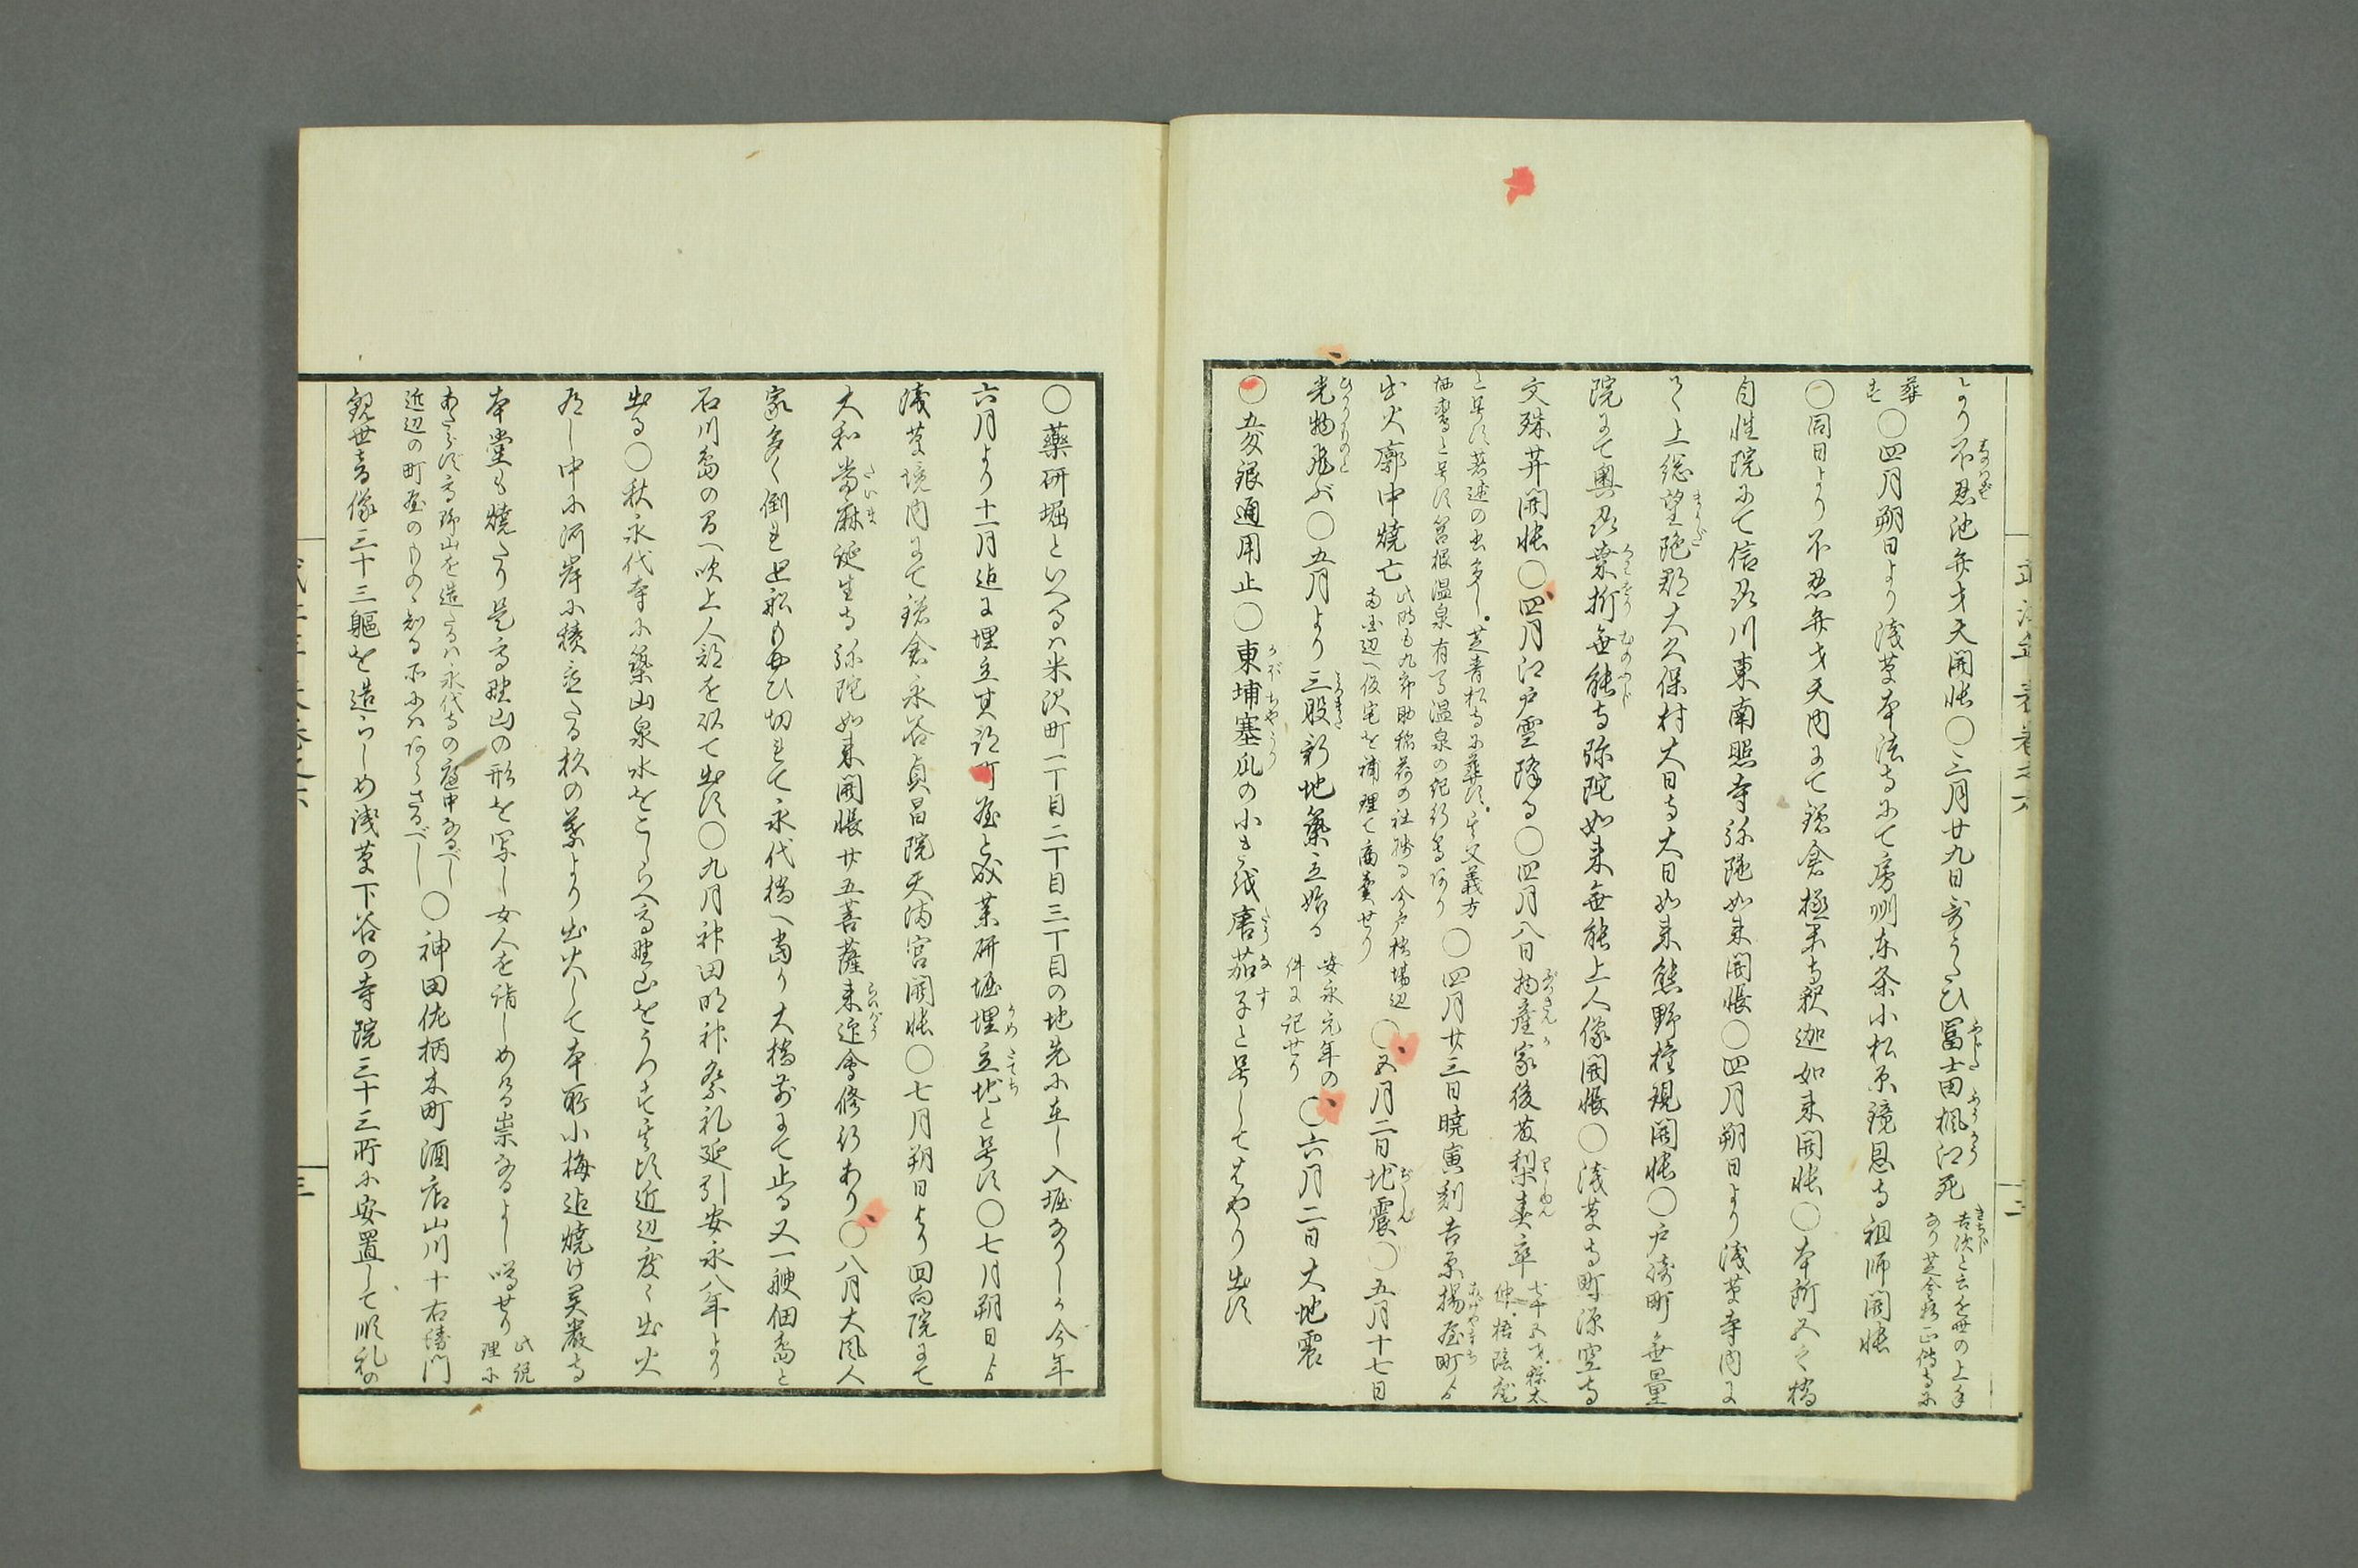 より不忍池弁才天開帳〇三月廿九日哥うたひ冨士田楓江死
吉次と云を世の上手
なり芝金杉正傳寺に
葬す
〇四月朔日より浅草本法寺にて房州东条小松原鏡忍寺祖師開帳
〇同日より不忍弁才天内にて鎌倉極楽寺釈迦如来開帳〇本所五之橋
自性院にて信州川東南照寺弥陀如来開帳〇四月朔日より浅草寺内に
て上総望陀郡大久保村大日寺大日如来熊野権現開帳〇戸崎町無量
院にて奥州桑折無能寺弥陀如来無能上人像開帳〇浅草寺町源空寺
文殊并開帳〇四月江戸雪降る〇四月八日物産家後藤梨春卒
と号す著述の書多し芝青松寺に葬す
〇四月廿三日暁寅刻吉原揚屋町より
出火廓中焼亡
此時も九郎助稲荷の社残る今戸橋場辺
両国辺へ仮宅を補理て商賣せり
〇五月二日地震〇五月十七日
光物飛ぶ〇五月より三股新地築立始る
安永元年の
件に記せり
〇六月二日大地震
〇五匁銀通用止〇東埔塞瓜の小き或唐茄子と号してはやり出す
〇薬研堀といへるハ米沢町一丁目二丁目三丁目の地先に在し入堀なりしか今年
六月より十一月迄に埋立其許町屋と成薬研堀埋立地と号す〇七月朔日より
浅草境内にて鎌倉永谷貞昌院天満宮開帳〇七月朔日より回向院にて
大和當麻誕生寺弥陀如来開帳廿五菩薩来迎會修行あり〇八月大風人
家多く倒れ出船もやひ切れて永代橋へ當り大橋前にて止る又一艘佃島と
石川島の間へ吹上人部を砍て出す〇九月神田明神祭礼延引安永八年より
出る〇秋永代寺に築山泉水をこしらへ高野山をうつす其頃近辺度々出火
有し中に河岸に積立たる杉の葉より出火して本所小梅迄焼け英巌寺
本堂も焼たり是高野山の形を写し女人を詣しめける祟なるよし噂せり
此説
理に
あたらず高野山を造たるハ永代寺の庭中なるべし
近辺の町屋のもの知る所にハあらざるべし
〇神田佐柄木町酒店山川十右衛門
観世音像三十三軀を造らしめ浅草下谷の寺院三十三所に安置して順礼の